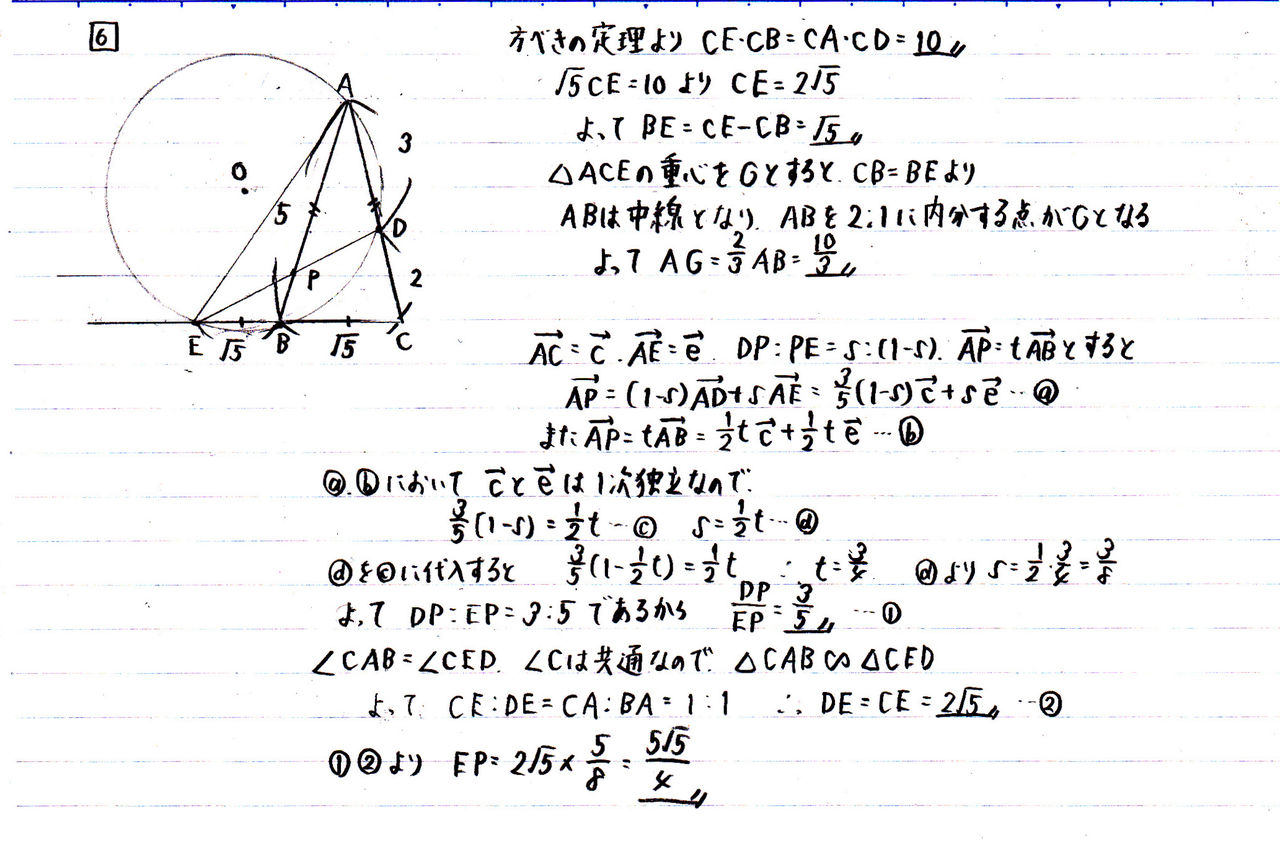 6
方べきの定理より CE・CB=CA・CD=10〃
√5CE=10より CE=2√5
よって BE=CE-CB=√5〃
△ACEの重心をGとすると、CB=BEより
ABは中線となり、ABを2:1に内分する点がGとなる
よって AG=2/3 AB=10/3〃
A
3
O
5
D
P
2
E √5 B √5 C
→AC=→c、→AE=→e、DP:PE=s:(1-s)、→AP=t→ABとすると
→AP=(1-s)→AD+s→AE=3/5(1-s)→c+s→e…ⓐ
また→AP=t→AB=1/2t→c+1/2t→e…ⓑ
ⓐ、ⓑにおいて →cと→eは1次独立なので、
3/5(1-s)=1/2t…ⓒ s=1/2t…ⓓ
ⓓをⓒに代入すると 3/5(1-1/2t)=1/2t ∴ t=3/4 ⓓより s=1/2・3/4=3/8
よって DP:EP=3:5であるから DP/EP=3/5〃 …①
∠CAB=∠CED、∠Cは共通なので、△CAB∽△CED
よって、CE:DE=CA:BA=1:1 ∴ DE=CE=2√5〃 …②
①②より EP=2√5×5/8=5√5/4〃